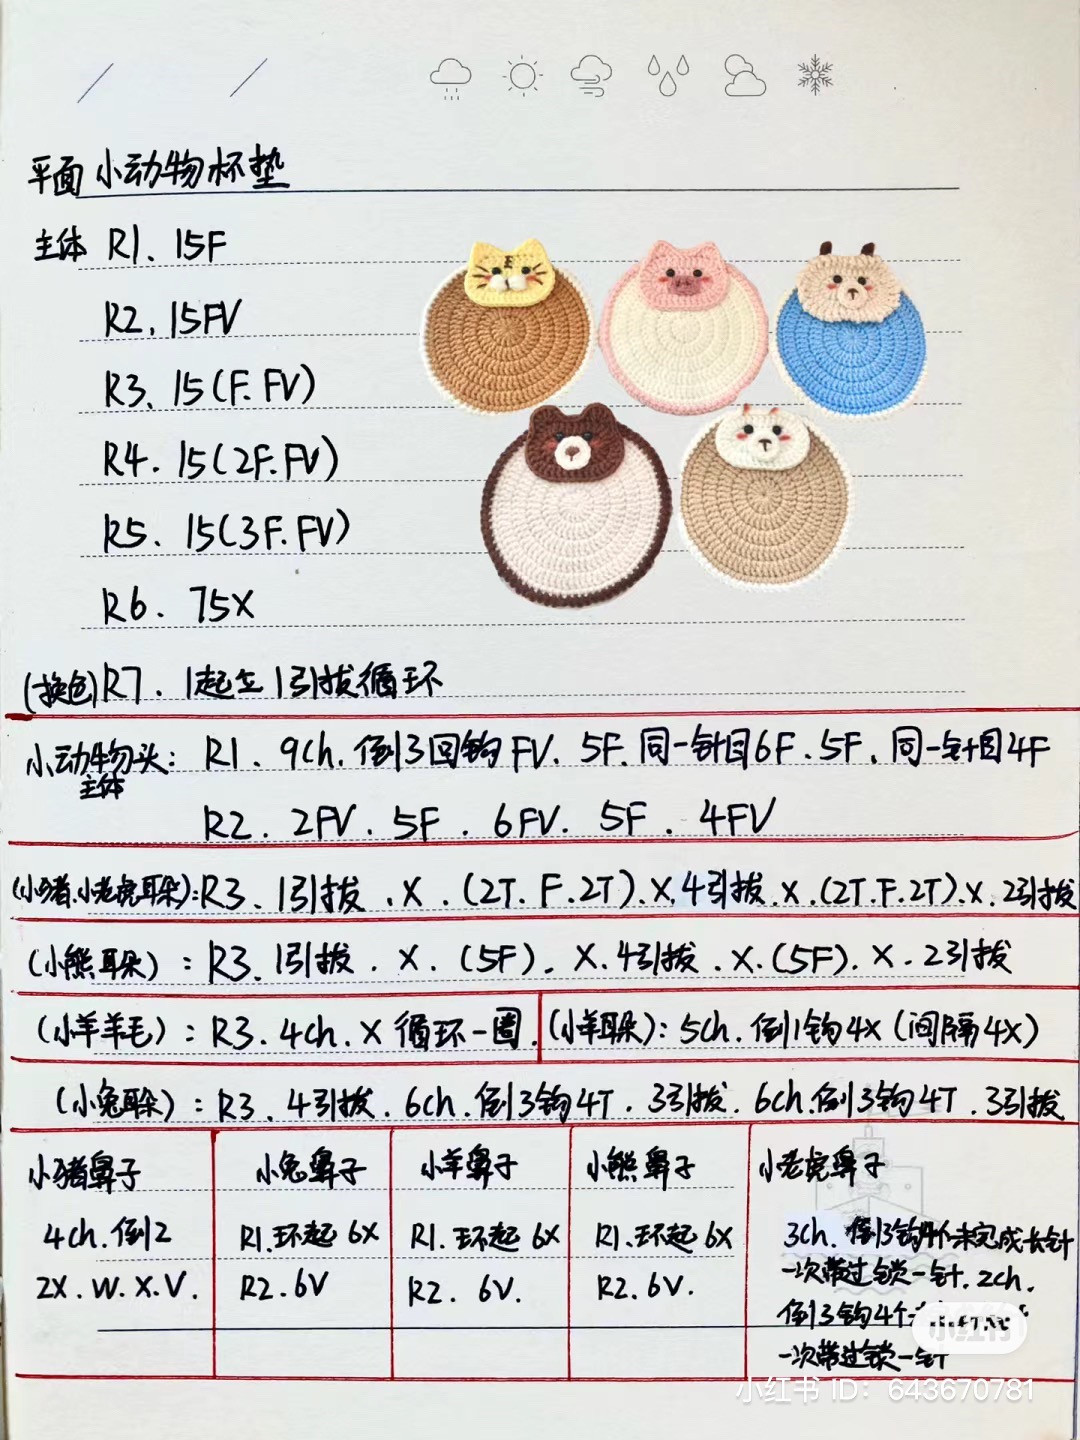 平面小动物杯垫
主体 R1、15F
R2、15FV
R3、15(F.FV)
R4、15(2F.FV)
R5、15(3F.FV)
R6、75X
(换色)R7、1起立1引拔循环
小动物头主体：R1、9ch.倒3回钩FV、5F.同一针目6F.5F.同一针目4F
R2、2FV、5F、6FV、5F、4FV
(小猪、小老虎耳朵)：R3、1引拔.X.(2T.F.2T).X.4引拔.X.(2T.F.2T).X.2引拔
(小熊耳朵)：R3、1引拔.X.(5F).X.4引拔.X.(5F).X.2引拔
(小羊羊毛)：R3、4ch.X循环一圈.
(小羊耳朵)：5ch.倒1钩4X(间隔4X)
(小兔耳朵)：R3、4引拔.6ch.倒3钩4T.3引拔.6ch.倒3钩4T.3引拔
小猪鼻子
4ch.倒2
2X.W.X.V.
小兔鼻子
R1.环起6X
R2.6V
小羊鼻子
R1.环起6X
R2.6V.
小熊鼻子
R1.环起6X
R2.6V.
小老虎鼻子
3ch.倒3钩4个未完成长针
一次带过锁一针.2ch.
倒3钩4个
一次带过锁一针
小红书
小红书 ID：643670781